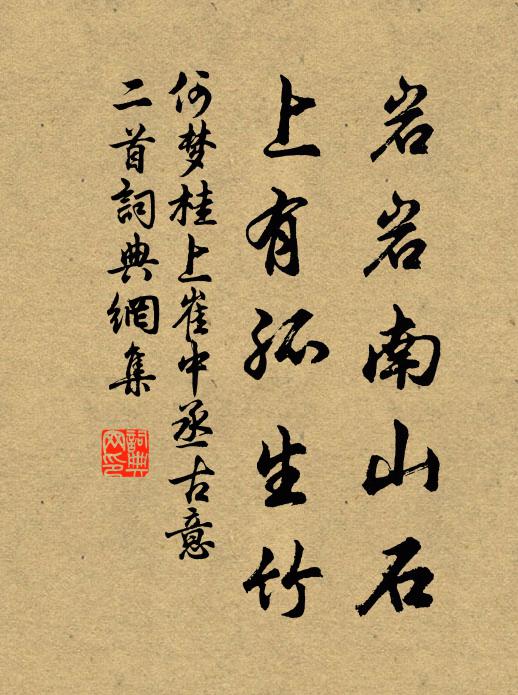 岩岩南山石
上有孤生竹
何梦桂上崔中丞古意
二首詞典網集
詞典網印